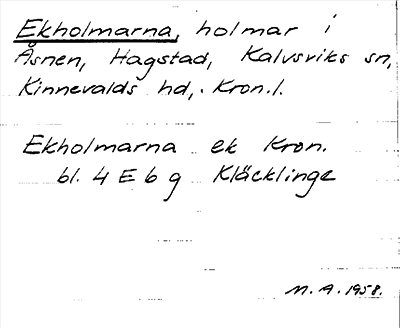 Ekholmarna, holmar i
Åsnen, Hagstad, Kalvsviks sn,
Kinnevalds hd, Kron.l.
Ekholmarna ek Kron.
bl. 4 E b g Kläcklinge
M. A. 1958.